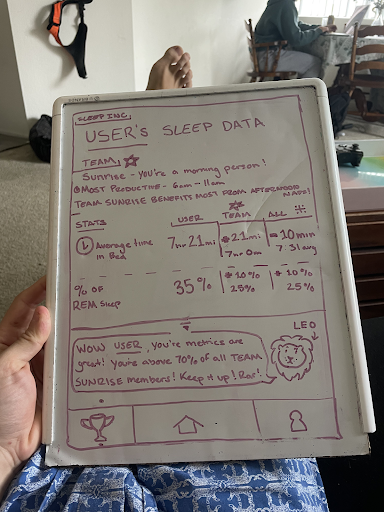 SLEEP INC.
USER'S SLEEP DATA
TEAM
Sunrise - you're a morning person!
MOST PRODUCTIVE - 6am - 11am
TEAM SUNRISE BENEFITS MOST FROM AFTERNOON NAPS!
STATS USER TEAM ALL
Average time in Bed 7hr 21mi 21mi 7hr 0m 10min 7.31avg
% OF REM Sleep 35% 10% 25% 10% 25%
LEO
WOW USER, you're metrics are
great! you're above 70% of all TEAM
SUNRISE members! Keep it up! Rar!